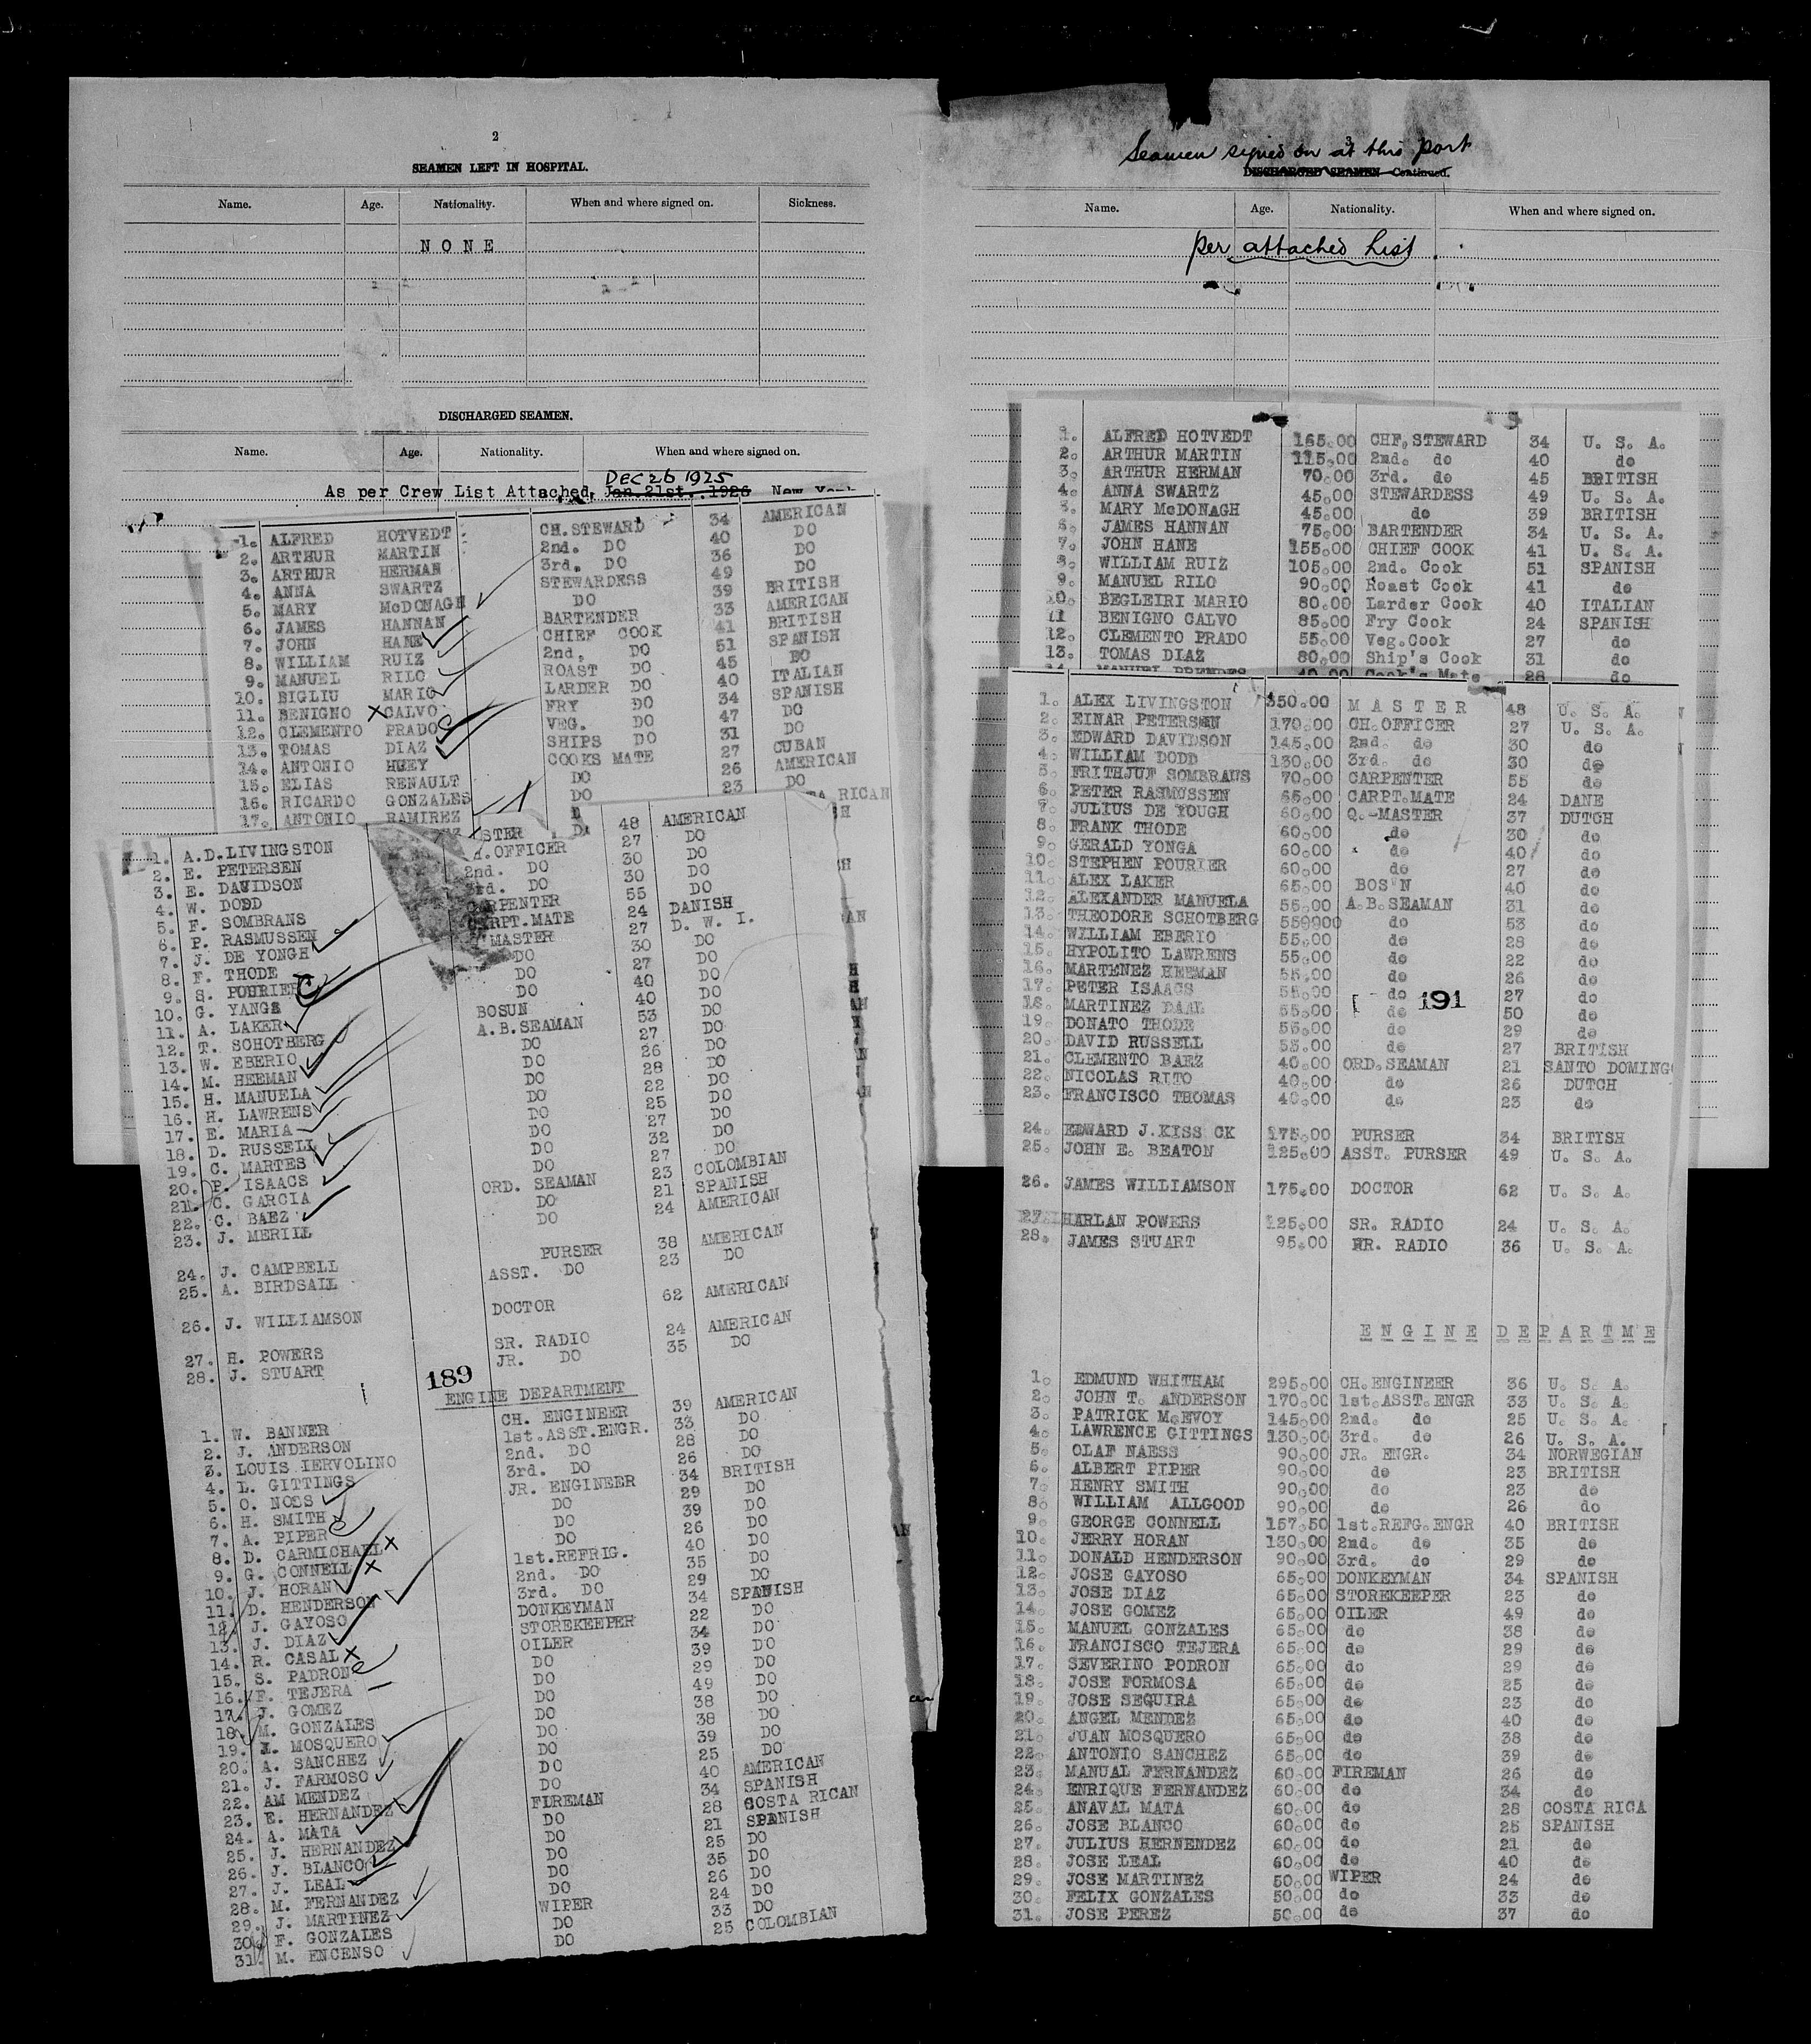 2
SEAMEN LEFT IN HOSPITAL.
Name. Age. Nationality. When and where signed on. Sickness.
NONE
DISCHARGED SEAMEN.
Name. Age. Nationality. When and where signed on.
DEC 26 1925
As per Crew List Attached, Jan. 21st. 1926 New York
1. ALFRED HOTVEDT CH.STEWARD 34 AMERICAN
2. ARTHUR MARTIN 2nd. DO 40 DO
3. ARTHUR HERMAN 3rd. DO 36 DO
4. ANNA SWARTZ STEWARDESS 49 DO
5. MARY McDONAGH DO 39 BRITISH
6. JAMES HANNAN BARTENDER 33 AMERICAN
7. JOHN HANE CHIEF COOK 41 BRITISH
8. WILLIAM RUIZ 2nd, DO 51 SPANISH
9. MANUEL RILO ROAST DO 45 DO
10. BIGLIU MARIO LARDER DO 40 ITALIAN
11. BENIGNO CALVO FRY DO 34 SPANISH
12. CLEMENTO PRADO VEG. DO 47 DO
13. TOMAS DIAZ SHIPS DO 31 DO
14. ANTONIO HUEY COOKS MATE 27 CUBAN
15. ELIAS RENAULT DO 26 AMERICAN
16. RICARDO GONZALES DO 23 DO
17. ANTONIO RAMIREZ RICAN
1. A.D.LIVINGSTON STER 48 AMERICAN
2. E. PETERSEN OFFICER 27 DO
3. E. DAVIDSON 2nd. DO 30 DO
4. W. DODD 3rd. DO 30 DO
5. F. SOMBRANS CARPENTER 55 DO
6. P. RASMUSSEN CARPT.MATE 24 DANISH
7. J. DE YONGH MASTER 27 D. W. I.
8. F. THODE DO 30 DO
9. S. POURIER DO 27 DO
10. G. YANGS DO 40 DO
11. A. LAKER BOSUN 40 DO
12. T. SCHOTBERG A.B.SEAMAN 53 DO
13. W. EBERIO DO 27 DO
14. M. HEEMAN DO 26 DO
15. H. MANUELA DO 28 DO
16. H. LAWRENS DO 22 DO
17. E. MARIA DO 25 DO
18. D. RUSSELL DO 27 DO
19. C. MARTES DO 32 DO
20. P. ISAACS DO 27 DO
21. C. GARCIA ORD. SEAMAN 23 COLOMBIAN
22. C. BAEZ DO 21 SPANISH
23. J. MERILL DO 24 AMERICAN
24. J. CAMPBELL PURSER 38 AMERICAN
25. A. BIRDSAIL ASST. DO 23 DO
26. J. WILLIAMSON DOCTOR 62 AMERICAN
27. H. POWERS SR. RADIO 24 AMERICAN
28. J. STUART JR. DO 35 DO
189
ENGINE DEPARTMENT
1. W. BANNER CH. ENGINEER 39 AMERICAN
2. J. ANDERSON 1st.ASST.ENGR. 33 DO
3. LOUIS IERVOLINO 2nd. DO 28 DO
4. L. GITTINGS 3rd. DO 26 DO
5. O. NOES JR. ENGINEER 34 BRITISH
6. H. SMITH DO 29 DO
7. A. PIPER DO 39 DO
8. D. CARMICHAEL DO 26 DO
9. G. CONNELL 1st.REFRIG. 40 DO
10. J. HORAN 2nd. DO 35 DO
11. D. HENDERSON 3rd. DO 29 DO
12. J. GAYOSO DONKEYMAN 34 SPANISH
13. J. DIAZ STOREKEEPER 22 DO
14. R. CASAL OILER 34 DO
15. S. PADRON DO 39 DO
16. F. TEJERA DO 29 DO
17. J. GOMEZ DO 49 DO
18. M. GONZALES DO 38 DO
19. J. MOSQUERO DO 38 DO
20. A. SANCHEZ DO 39 DO
21. J. FARMOSO DO 25 DO
22. AM MENDEZ DO 40 AMERICAN
23. E. HERNANDEZ FIREMAN 34 SPANISH
24. A. MATA DO 28 COSTA RICAN
25. J. HERNANDEZ DO 21 SPANISH
26. J. BLANCO DO 25 DO
27. J. LEAL DO 35 DO
28. M. FERNANDEZ DO 26 DO
29. J. MARTINEZ WIPER 24 DO
30. F. GONZALES DO 33 DO
31. M. ENCENSO DO 25 COLOMBIAN
Seamen signed on at this port
DISCHARGED SEAMEN—Continued.
Name. Age. Nationality. When and where signed on.
per attached List.
1. ALFRED HOTVEDT 165.00 CHF.STEWARD 34 U. S. A.
2. ARTHUR MARTIN 115.00 2nd. do 40 do
3. ARTHUR HERMAN 70.00 3rd. do 45 BRITISH
4. ANNA SWARTZ 45.00 STEWARDESS 49 U. S. A.
5. MARY McDONAGH 45.00 do 39 BRITISH
6. JAMES HANNAN 75.00 BARTENDER 34 U. S. A.
7. JOHN HANE 155.00 CHIEF COOK 41 U. S. A.
8. WILLIAM RUIZ 105.00 2nd. Cook 51 SPANISH
9. MANUEL RILO 90.00 Roast Cook 41 do
10. BEGLEIRI MARIO 80.00 Larder Cook 40 ITALIAN
11 BENIGNO CALVO 85.00 Fry Cook 24 SPANISH
12. CLEMENTO PRADO 55.00 Veg.Cook 27 do
13. TOMAS DIAZ 80.00 Ship's Cook 31 do
40.00 Cook's Mate 28 do
1. ALEX LIVINGSTON 350.00 MASTER 48 U. S. A.
2. EINAR PETERSEN 170.00 CH.OFFICER 27 U. S. A.
3. EDWARD DAVIDSON 145.00 2nd. do 30 do
4. WILLIAM DODD 130.00 3rd. do 30 do
5. FRITHJUF SOMBRAUS 70.00 CARPENTER 55 do
6. PETER RASMUSSEN 65.00 CARPT.MATE 24 DANE
7. JULIUS DE YOUGH 60.00 Q.-MASTER 37 DUTCH
8. FRANK THODE 60.00 do 30 do
9. GERALD YONGA 60.00 do 40 do
10. STEPHEN POURIER 60.00 do 27 do
11. ALEX LAKER 65.00 BOS'N 40 do
12. ALEXANDER MANUELA 55.00 A.B.SEAMAN 31 do
13. THEODORE SCHOTBERG 559900 do 53 do
14. WILLIAM EBERIO 55.00 do 28 do
15. HYPOLITO LAWRENS 55.00 do 22 do
16. MARTENEZ HEEMAN 55.00 do 26 do
17. PETER ISAACS 55.00 do 27 do
191
18. MARTINEZ DAAL 55.00 do 50 do
19. DONATO THODE 55.00 do 29 do
20. DAVID RUSSELL 55.00 do 27 BRITISH
21. CLEMENTO BAEZ 40.00 ORD.SEAMAN 21 SANTO DOMINGO
22. NICOLAS RITO 40.00 do 26 DUTCH
23. FRANCISCO THOMAS 40.00 do 23 do
24. EDWARD J.KISS CK 175.00 PURSER 34 BRITISH
25. JOHN E. BEATON 125.00 ASST. PURSER 49 U. S. A.
26. JAMES WILLIAMSON 175.00 DOCTOR 62 U. S. A.
27. HARLAN POWERS 125.00 SR. RADIO 24 U. S. A.
28. JAMES STUART 95.00 RADIO 36 U. S. A.
ENGINE DEPARTME
1. EDMUND WHITHAM 295.00 CH.ENGINEER 36 U. S. A.
2. JOHN T. ANDERSON 170.00 1st.ASST.ENGR 33 U. S. A.
3. PATRICK McEVOY 145.00 2nd. do 25 U. S. A.
4. LAWRENCE GITTINGS 130.00 3rd. do 26 U. S. A.
5. OLAF NAESS 90.00 JR. ENGR. 34 NORWEGIAN
6. ALBERT PIPER 90.00 do 23 BRITISH
7. HENRY SMITH 90.00 do 23 do
8. WILLIAM ALLGOOD 90.00 do 26 do
9. GEORGE CONNELL 157.50 1st.REFG.ENGR 40 BRITISH
10. JERRY HORAN 130.00 2nd. do 35 do
11. DONALD HENDERSON 90.00 3rd. do 29 do
12. JOSE GAYOSO 65.00 DONKEYMAN 34 SPANISH
13. JOSE DIAZ 65.00 STOREKEEPER 23 do
14. JOSE GOMEZ 65.00 OILER 49 do
15. MANUEL GONZALES 65.00 do 38 do
16. FRANCISCO TEJERA 65.00 do 29 do
17. SEVERINO PODRON 65.00 do 29 do
18. JOSE FORMOSA 65.00 do 25 do
19. JOSE SEQUIRA 65.00 do 23 do
20. ANGEL MENDEZ 65.00 do 40 do
21. JUAN MOSQUERO 65.00 do 38 do
22. ANTONIO SANCHEZ 65.00 do 39 do
23. MANUAL FERNANDEZ 60.00 FIREMAN 26 do
24. ENRIQUE FERNANDEZ 60.00 do 34 do
25. ANAVAL MATA 60.00 do 28 COSTA RICA
26. JOSE BLANCO 60.00 do 25 SPANISH
27. JULIUS HERNENDEZ 60.00 do 21 do
28. JOSE LEAL 60.00 do 40 do
29. JOSE MARTINEZ 50.00 WIPER 24 do
30. FELIX GONZALES 50.00 do 33 do
31. JOSE PEREZ 50.00 do 37 do